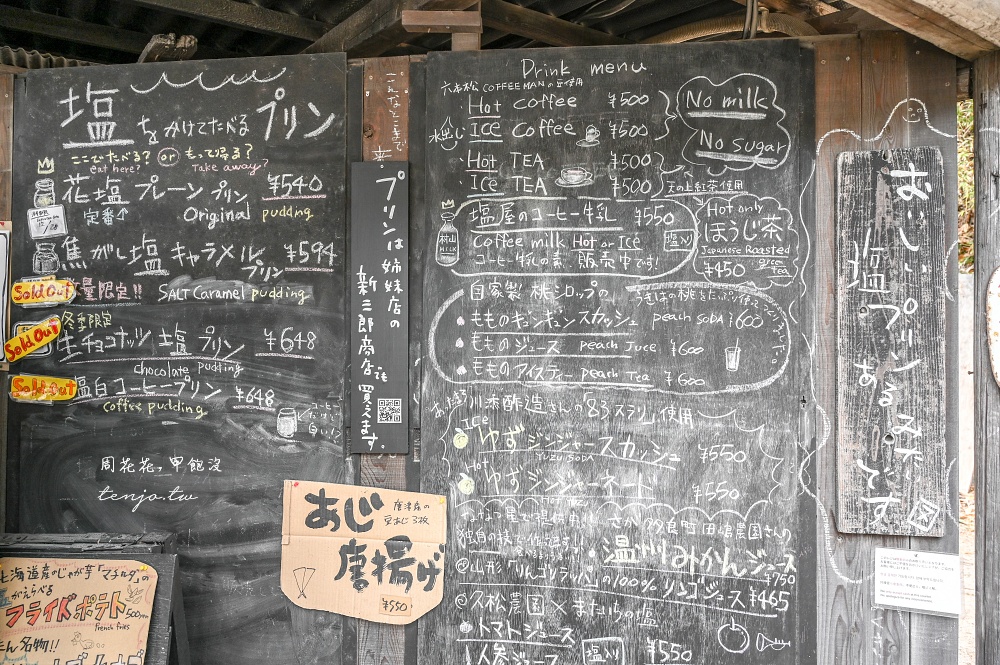 塩をかけてたべるプリン
ここでたべる? or もって帰る?
eat here? Take away?
花塩プレーンプリン ¥540
定番 Original pudding
焦がし塩キャラメルプリン ¥594
Sold out 数量限定!! SALT Caramel pudding
冬季限定
Sold Out 生チョコナッツ塩プリン ¥648
chocolate pudding
Sold Out 塩白コーヒープリン ¥648
Coffee pudding
コーヒーだけど白い!
周花花, 甲飽没
tenjo.tw
こんなところまで
プリンは姉妹店の
新三郎商店でも買えます.
Drink menu
六本松 COFFEEMANの豆使用
Hot coffee ¥500
水出し ICE Coffee ¥500
No milk
No sugar
・Hot TEA ¥500
・Ice TEA ¥500
天の上紅茶使用
塩屋のコーヒー牛乳 ¥550
Coffee milk Hot or ICE 塩入り
コーヒー牛乳の素、販売中です!
村山 MILK
Hot only
ほうじ茶
Japanese Roasted green tea
¥450
自家製 桃シロップの
うきはの桃をたっぷり使って
もものキュンキュンスカッシュ peach SODA ¥600
もものジュース peach Juce ¥600
もものアイスティー peach Tea ¥600
Ice
ゆずジンジャースカッシュ ¥550
YUZU SODA
Hot
ゆずジンジャーネード ¥550
ななつ星で提供中!
さが 多良町 田嶋農園さんの
温州みかんジュース ¥750
@山形「りんごリラックス」の100%リンゴジュース ¥465
@久松農園×またいちの塩
・トマトジュース
・人参ジュース 塩入り ¥550
おいしいプリン
塩プリンあるえでです
あじ唐揚げ
唐津産の豆あじ3枚
¥550
北海道産のじゃが芋「マチルダ」の
フライドポテト 500yen
French fries
たん名物!!